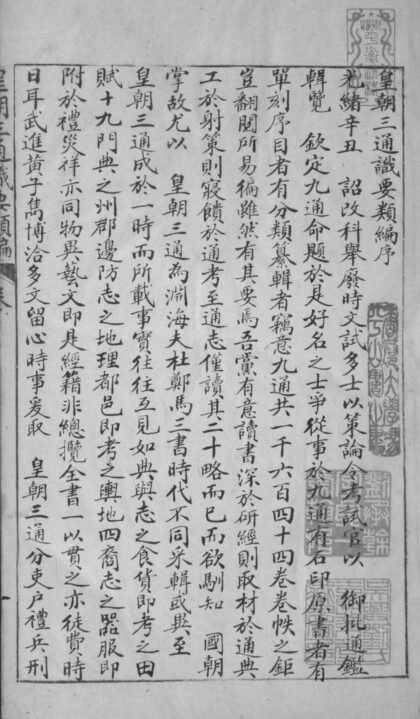 皇朝三通識要類編序
光緒辛丑 詔改科舉廢時文試多士以策論令考試官以 御批通鑑
輯覽 欽定九通命題於是好名之士爭從事於九通有石印原書者有
單刻序目者有分類纂輯者竊意九通共一千六百四十四卷卷帙之鉅
豈翻閱所易徧雖然有其要焉吾黨有意讀書深於研經則取材於通典
工於射策則寢饋於通考至通志僅讀其二十略而已而欲馴知 國朝
掌故尤以 皇朝三通為淵海夫杜鄭馬三書時代不同采輯或異至
皇朝三通成於一時而所載事實往往互見如典與志之食貨即考之田
賦十九門典之州郡邊防志之地理都邑即考之輿地四裔志之器服即
附於禮災祥亦同物異藝文即是經籍非總攬全書一以貫之亦徒費時
日耳武進黃子雋博洽多文留心時事爰取 皇朝三通分吏戶禮兵刑
皇朝三通識要類編